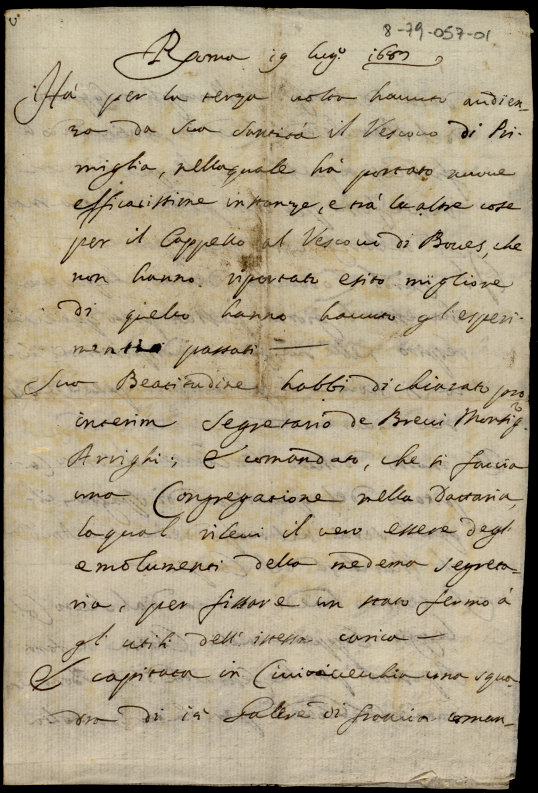 8-79-057-01
Roma 19 lug.o 1687
Ha per la terza volta havuto audien-
za da Sua Santità il Vescovo di Pu-
miglia, nella quale hà portato nuove
efficacissime instanze, e trà le altre cose
per il Cappello al Vescovo di Boves, che
non hanno riportato esito migliore
di quello hanno havuto gl'esperi-
menti passati —
Sua Beatitudine habbi dichiarato pro
interim Segretario de Brevi Monsig.r
Arrighi; & comandato, che si faccia
una Congregatione nella Dattaria,
la qual rilevi il vero essere degl
emolumenti della medema segreta-
ria, per fissare un stato fermo à
gl'utili dell'istessa carica —
È capitata in Civitavecchia una squa-
dra di 12 Galere di Francia coman-